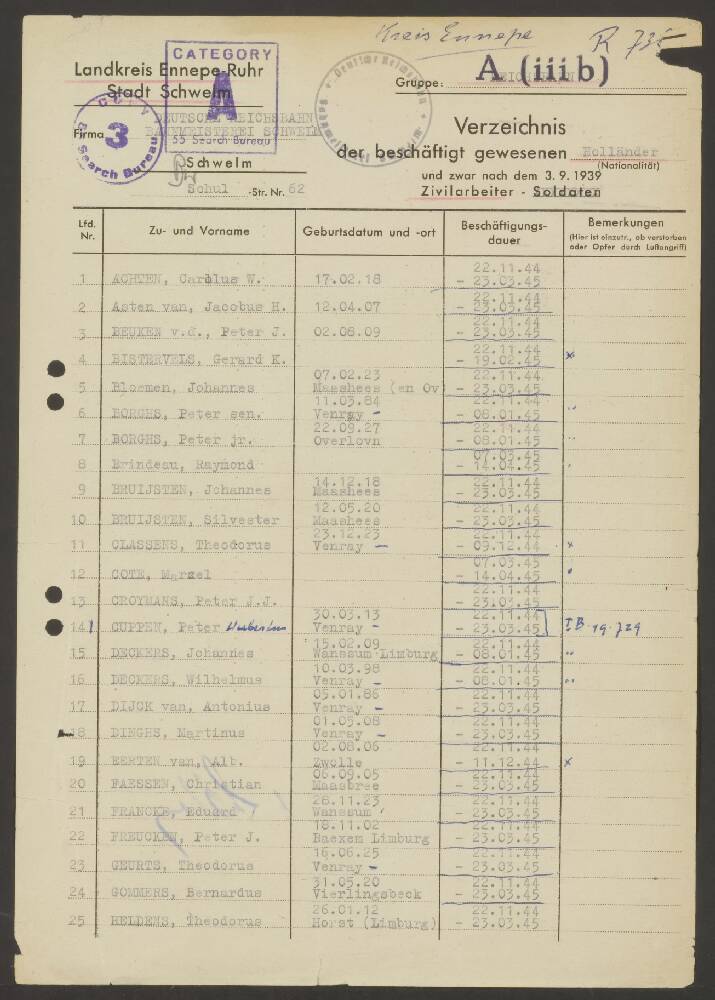 Kreis Ennepe
R 735
CATEGORY
A
55 Search Bureau
Landkreis Ennepe-Ruhr
Stadt Schwelm
Gruppe: A (iiib)
COPY
3
Search Bureau
DEUTSCHE REICHSBAHN
Firma BAHNMEISTEREI SCHWELM
Schwelm
Schul -Str. Nr. 62
Verzeichnis
der beschäftigt gewesenen Holländer
(Nationalität)
und zwar nach dem 3. 9. 1939
Zivilarbeiter - Soldaten
Lfd. Nr. Zu- und Vorname Geburtsdatum und -ort Beschäftigungs-dauer Bemerkungen
(Hier ist einzutr., ob verstorben oder Opfer durch Luftangriff)
1 ACHTEN, Carolus W. 17.02.18 22.11.44 - 23.03.45
2 Asten van, Jacobus H. 12.04.07 22.11.44 - 23.03.45
3 BEUKEN v.d., Peter J. 02.08.09 22.11.44 - 23.03.45
4 BISTERVELS, Gerard K. 22.11.44 - 19.02.45 x
5 Bloemen, Johannes 07.02.23 Maashees (en Ov) 22.11.44 - 23.03.45
6 BORGHS, Peter sen. 11.03.84 Venray - 22.11.44 - 08.01.45 "
7 BORGHS, Peter jr. 22.09.27 Overlovn 22.11.44 - 08.01.45 "
8 Brindeau, Raymond 07.03.45 - 14.04.45 "
9 BRUIJSTEN, Johannes 14.12.18 Maashees 22.11.44 - 23.03.45
10 BRUIJSTEN, Silvester 12.05.20 Maashees 22.11.44 - 23.03.45
11 CLASSENS, Theodorus 23.12.23 Venray - 22.11.44 - 09.12.44 x
12 COTE, Marzel 07.03.45 - 14.04.45 "
13 CROYMANS, Peter J.J. 22.11.44 - 23.03.45
14 CUPPEN, Peter Hubertus 30.03.13 Venray - 22.11.44 - 23.03.45 IB-19.729
15 DECKERS, Johannes 15.02.09 Wanssum Limburg 22.11.44 - 08.01.45 "
16 DECKERS, Wilhelmus 10.03.98 Venray - 22.11.44 - 08.01.45 "
17 DIJCK van, Antonius 05.01.86 Venray - 22.11.44 - 23.03.45
18 DINGHS, Martinus 01.05.08 Venray - 22.11.44 - 23.03.45
19 EERTEN van, Alb. 02.08.06 Zwolle 22.11.44 - 11.12.44 x
20 FAESSEN, Christian 06.09.05 Maasbree 22.11.44 - 23.03.45
21 FRANCKE, Eduard 28.11.23 Wanssum 22.11.44 - 23.03.45
22 FREUCKEN, Peter J. 18.11.02 Baexem Limburg 22.11.44 - 23.03.45
23 GEURTS, Theodorus 16.06.25 Venray - 22.11.44 - 23.03.45
24 GOMMERS, Bernardus 31.05.20 Vierlingsbeck 22.11.44 - 23.03.45
25 HELDENS, Theodorus 26.01.12 Horst (Limburg) 22.11.44 - 23.03.45